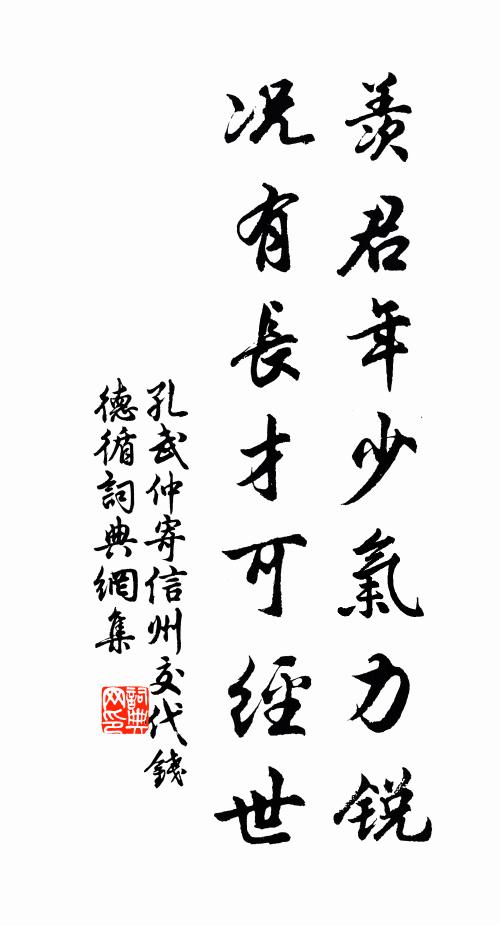 羨君年少氣力銳
況有長才可經世
孔武仲寄信州交代錢
德循詞典網集
詞典
网印